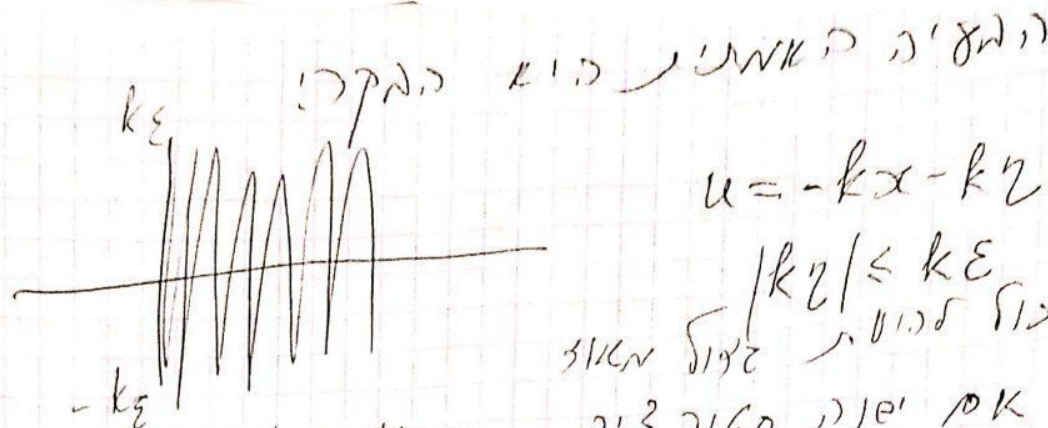 הבעיה האמתית היא הבקרה!
kε
u = -kx - kη
|kη| ≤ kε
יכול להיות גדול מאוד
-kε
אם ישנה